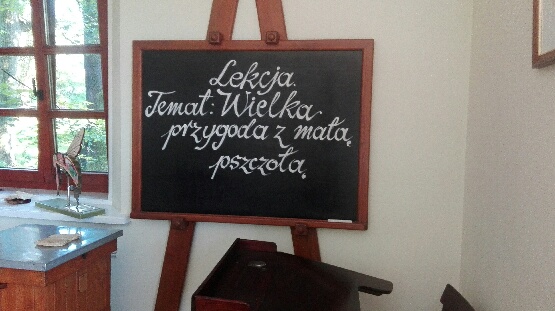 Lekcja.
Temat: Wielka
przygoda z małą
pszczołą